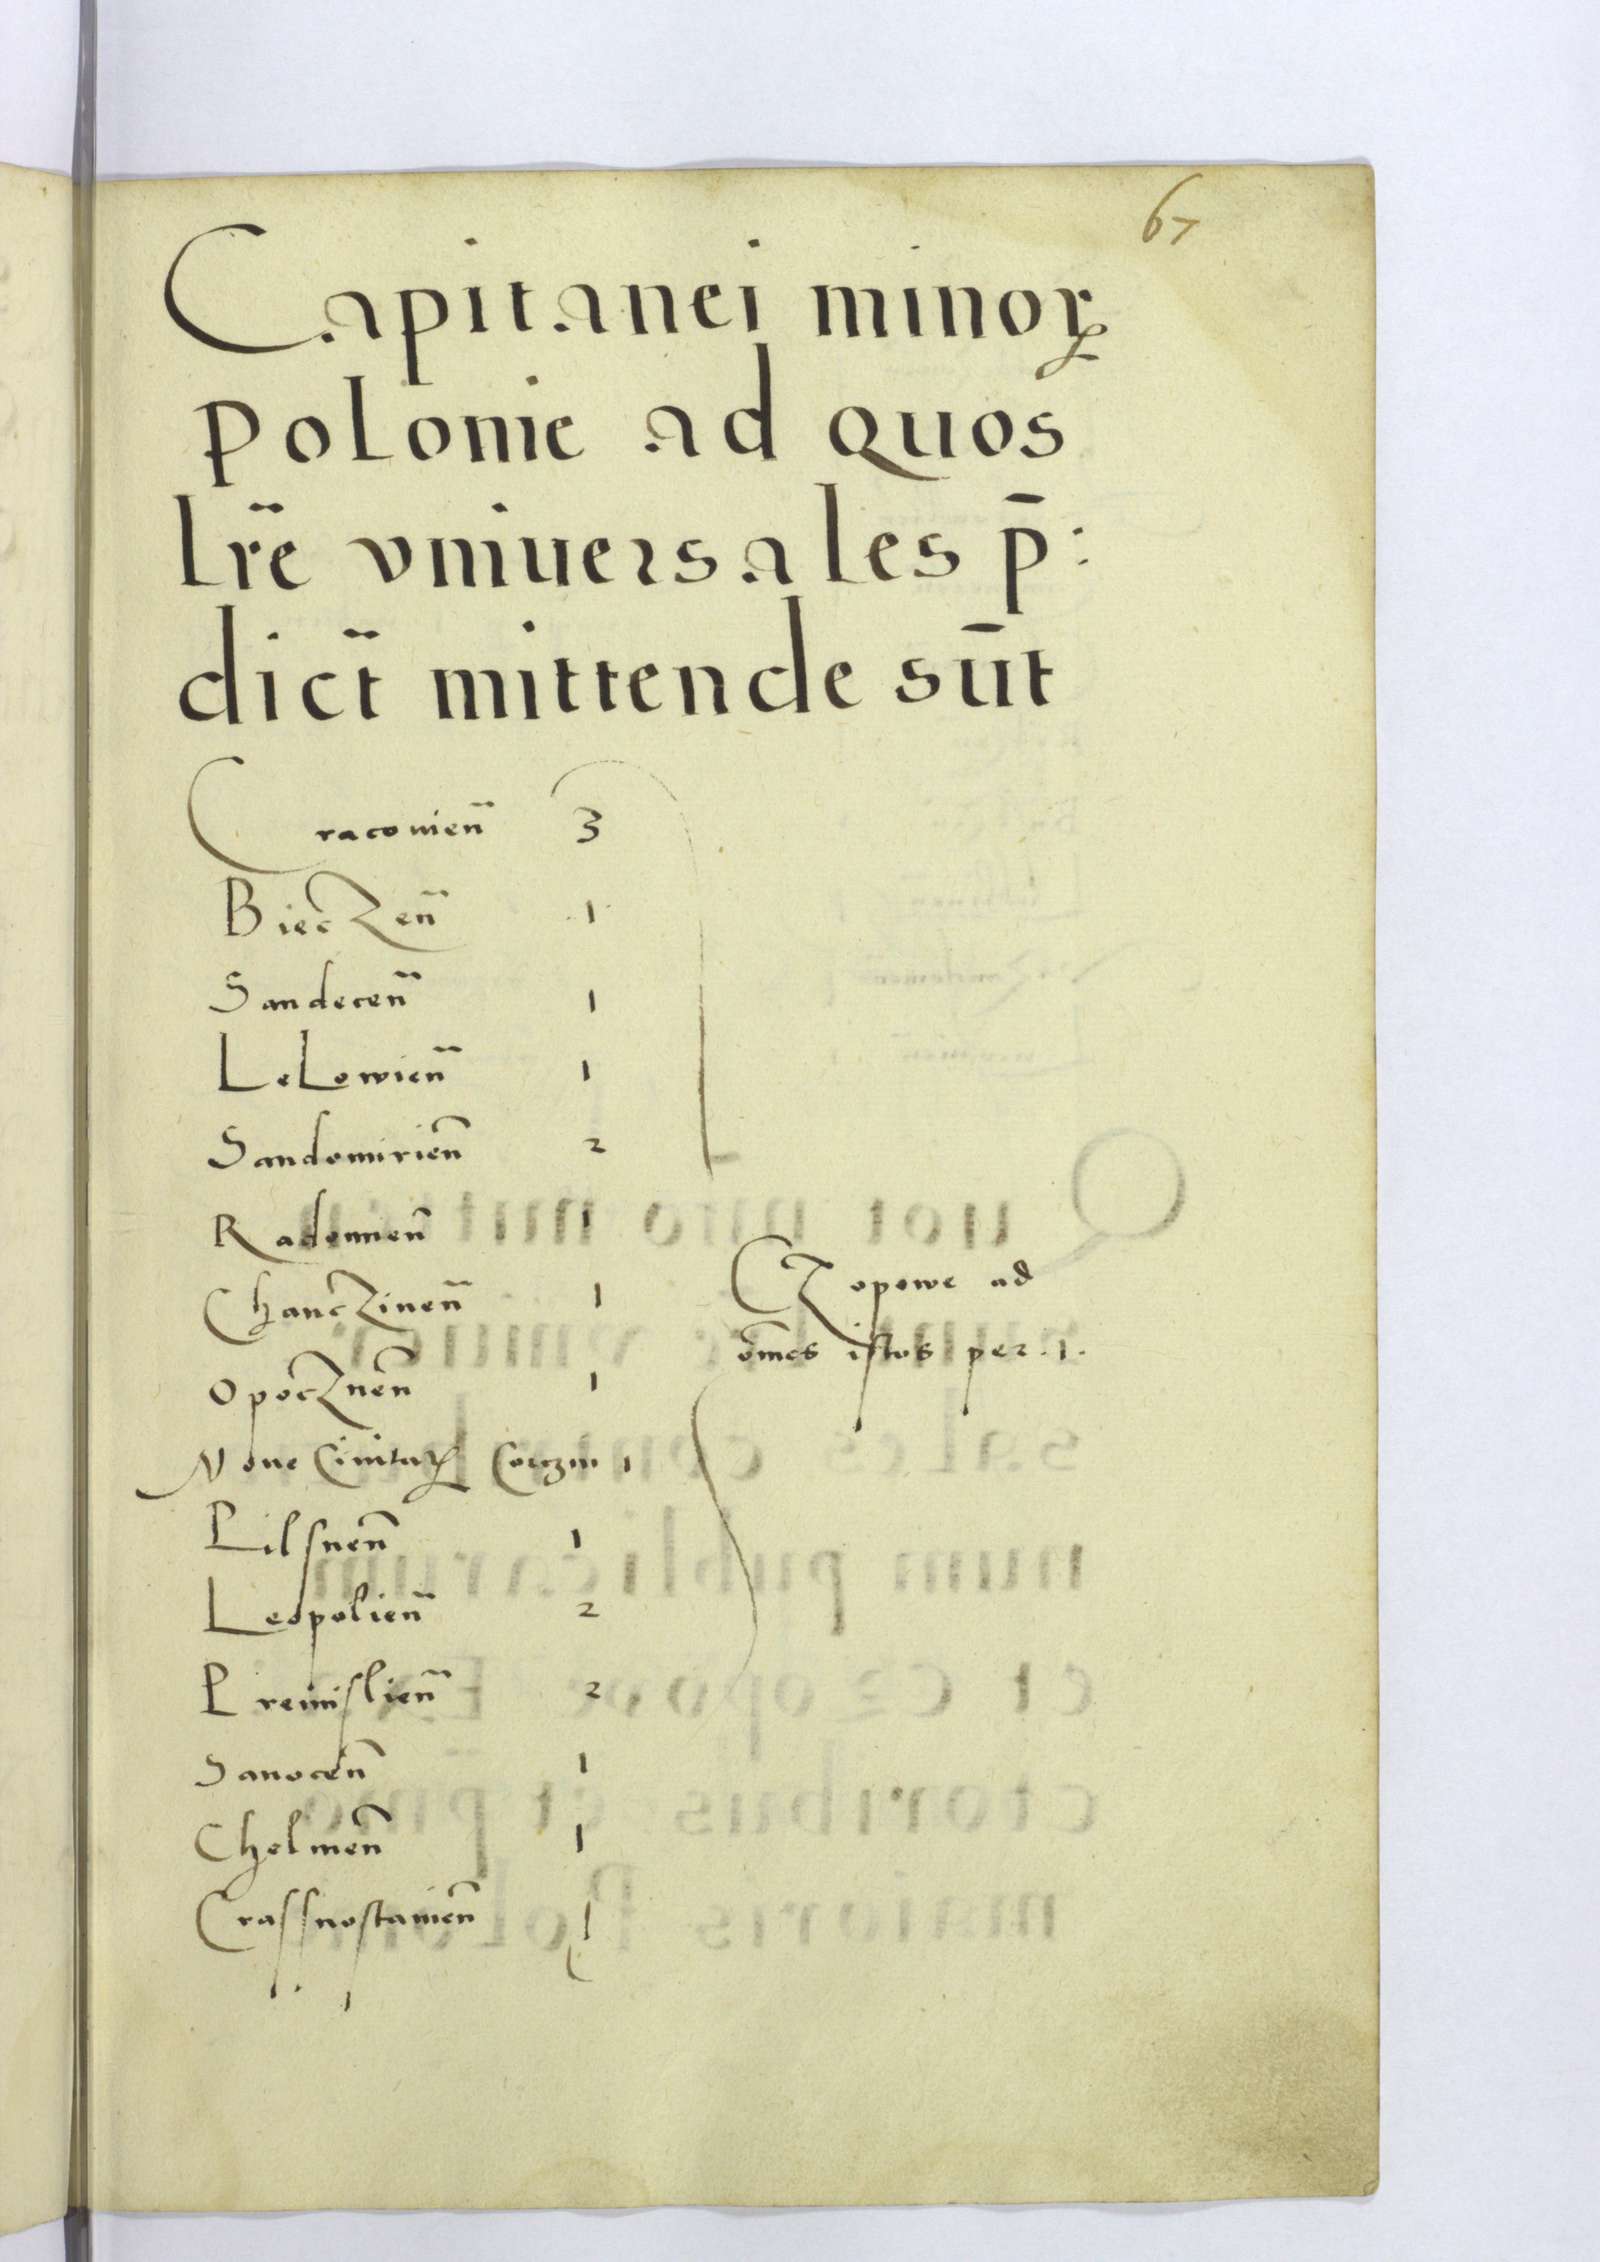 67
Capitanei minorꝝ
Polonie ad quos
lr̃e vniuersales p̄:
dict̃ mittende sūt
Cracouien̄ 3
Bieczen̄ 1
Sandecen̄ 1
Lelowien̄ 1
Sandomirien̄ 2
Radomien̄ 1
Chanczinen̄ 1
Opocznen̄ 1
Noue Ciuitatꝭ Corczin 1
Pilsnen̄ 1
Leopolien̄ 2
Premislien̄ 2
Sanocen̄ 1
Chelmen̄ 1
Crassnostauien̄ 1
Czopowe ad
om̄es istos per .1.